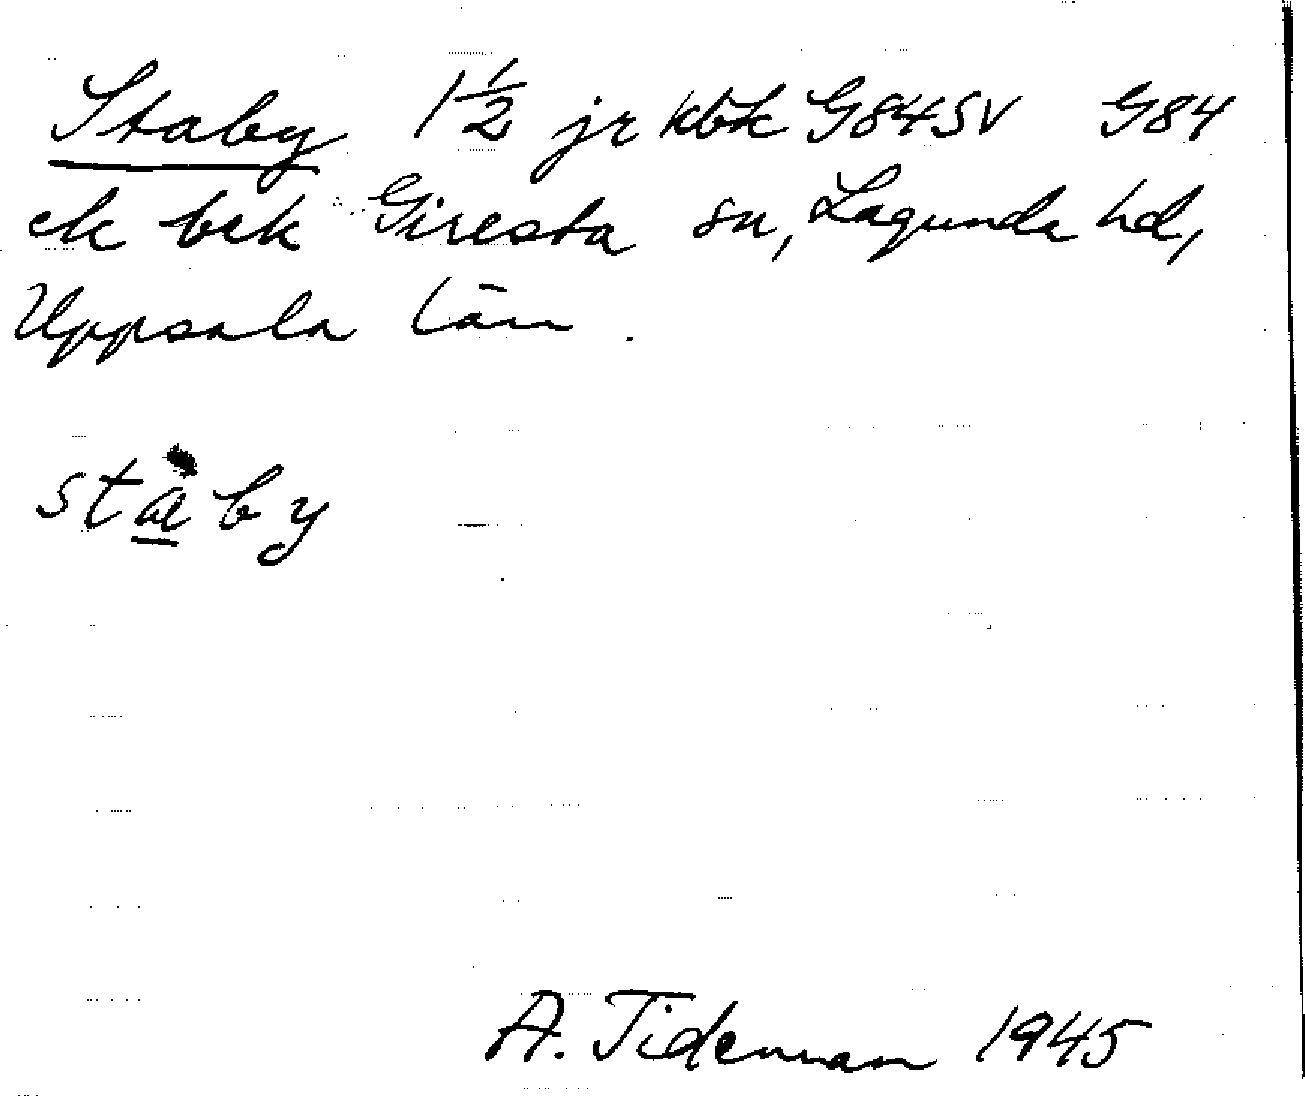 Staby 1½ jr kbk G84SV G84
ek bek Giresta sn, Lagunda hd,
Uppsala län.
staby
A. Tideman 1945